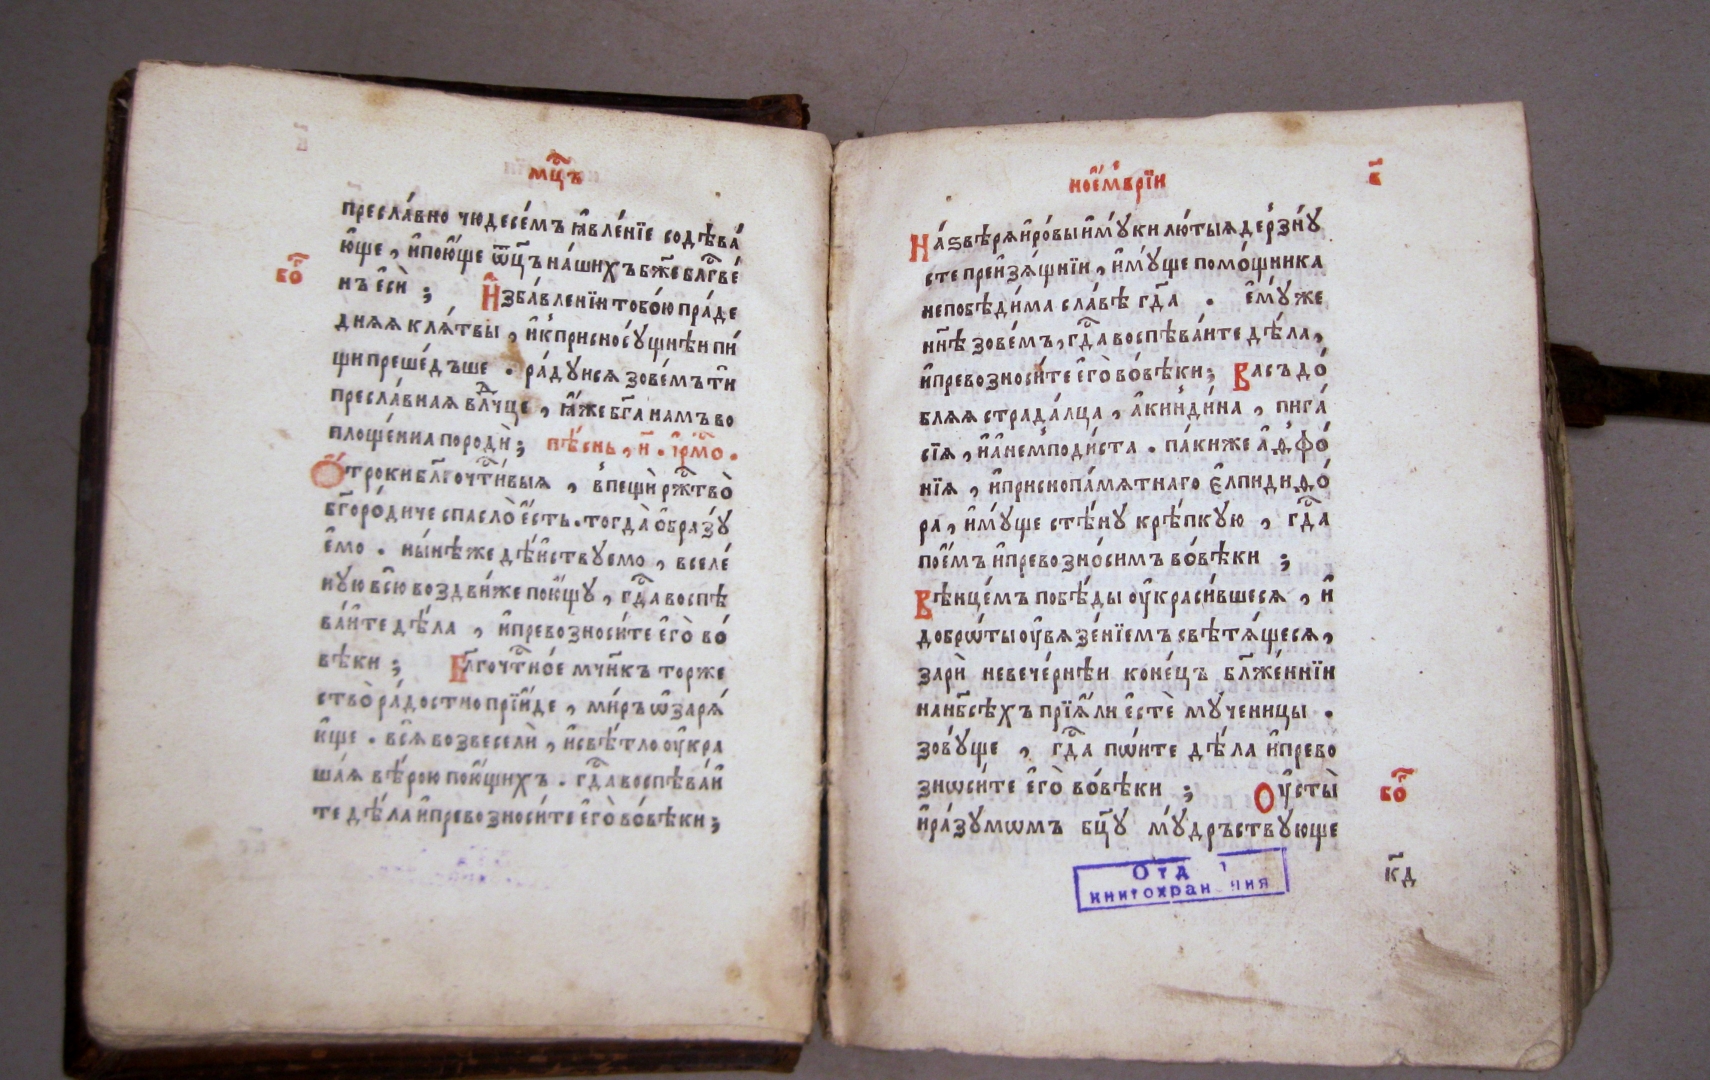 мц҃ъ
пресла́вно чюдесе́мъ ꙗ҆вле́нїе содѣва́
ю҆ще , и҆пою҆ще ѿц҃ъ на́шихъ бж҃е блг҃ве́
нъ є҆сѝ ;   И҆зба́вленїи тобо́ю пра́де
бо҃
дняя кля́твы , и҆к̾присносу́щнѣи пи́
щи преше́дъше . ра́дуися зове́мъ ти҆
пресла́вная влч҃це , ꙗ҆́же бг҃а нам̾ во
площе́нна породѝ ; пѣ́снь , и҃ . і҆рмо҃ .
О҆́троки блгочти́выя , в̾пещѝ ржтво̀
бг҃оро́диче спасло̀ є҆́сть . тогда̀ ѻ҆бразу́
є҆мо . ны́нѣ же дѣ́иствуемо , вселе́
ную всю̀ воздви́же пою҆щу , гд҃а воспѣ
ва́ите дѣ́ла , и҆превозноси́те є҆го̀ во́
вѣки ;   Бл҃гочтно́е мч҃нкъ торже
ство̀ ра́достно прїи҆́де , ми́ръ ѡ҆заря́
ю҆ще . вся̀ возвеселѝ , и҆свѣ́тло оу҆кра
ша́я вѣ́рою пою҆щихъ . гд҃а воспѣва́и
те дѣ́ла и҆превозноси́те є҆го̀ во́вѣки ;
ное҆́мврїи
в҃
На́ ѕвѣря и҆ ро́вы и҆ му́ки лю́тыя дерзну́
сте преи҆зя́щнїи , и҆му́ще помо́щника
непобѣди́ма сла́вѣ гд҃а . є҆му́же
нн҃ѣ зове́мъ , гд҃а воспѣва́ите дѣ́ла ,
и҆превозноси́те є҆го̀ во́вѣки ; Васъ до́
бляя страда́лца , а҆кинди́на , пига́
сїя , и҆ а҆немподи́ста . па́ки же а҆ѳѳо́
нїя , и҆приснопа́мятнаго є҆лпидиѳо́
ра , и҆му́ще стѣ́ну крѣ́пкую , гд҃а
пое҆́мъ и҆превозно́симъ во́вѣки ;
Вѣнце́мъ побѣ́ды оу҆краси́вшеся , и҆
добрѡты оу҆вязе́нїемъ свѣтя́щеся ,
зарѝ невече́рнѣи коне́цъ бл҃же́ннїи
наи҆бсѣ́хъ прїя́ли є҆стѐ му́ченицы .
зову́ще , гд҃а пѡ́ите дѣ́ла и҆прево
знѡси́те є҆го̀ во́вѣки ;   Оу҆сты̀
бо҃
и҆ ра́зумѡмъ бц҃у му́дръствующе
к҃д
Отд
книгохран ния